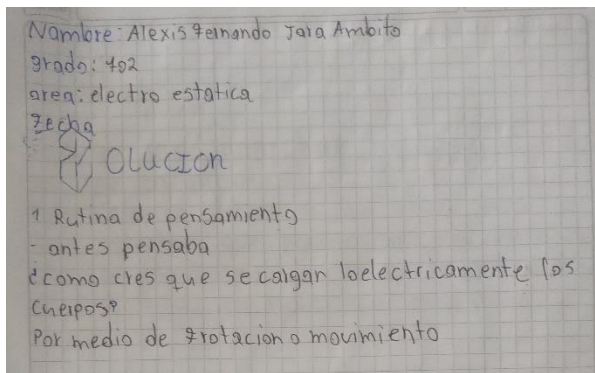 Nombre: Alexis Fernando Jara Ambito
grado: 402
area: electro estatica
Fecha
SOLUCION
1 Rutina de pensamiento
- antes pensaba
¿como cres que se calgan loelectricamente los
cuerpos?
Por medio de frotacion o movimiento